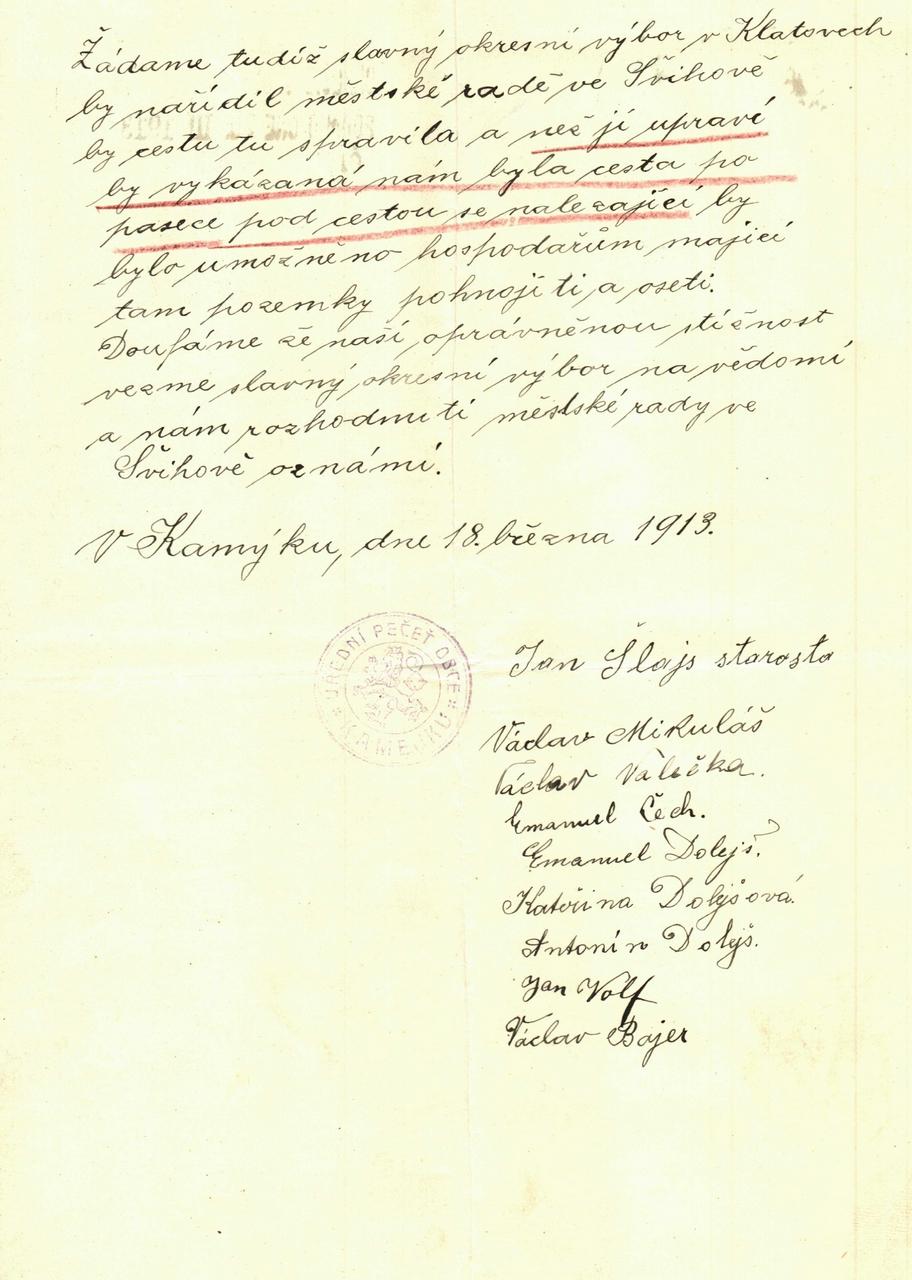 Žádame tudíž slavný okresní výbor v Klatovech
by nařídil městské radě ve Švihově
by cestu tu spravila a než ji upraví
by vykázaná nám byla cesta po
pasece pod cestou se nalezající by
bylo umožněno hospodařům majicí
tam pozemky pohnojiti a oseti.
Doufáme že naší oprávněnou stížnost
vezme slavný okresní výbor na vědomí
a nám rozhodnutí městské rady ve
Švihově oznámí.
V Kamýku, dne 18. března 1913.
ÚŘEDNÍ PEČEŤ OBCE
KAMEJKU
Jan Šlajs starosta
Václav Mikuláš
Václav Valečka.
Emanuel Čech.
Emanuel Dolejš.
Kateřina Dolejšová.
Antonín Dolejš.
Jan Volf
Václav Bajer